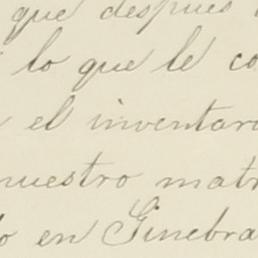 que despues
lo que le co
el inventar
nuestro matr
o en Ginebra